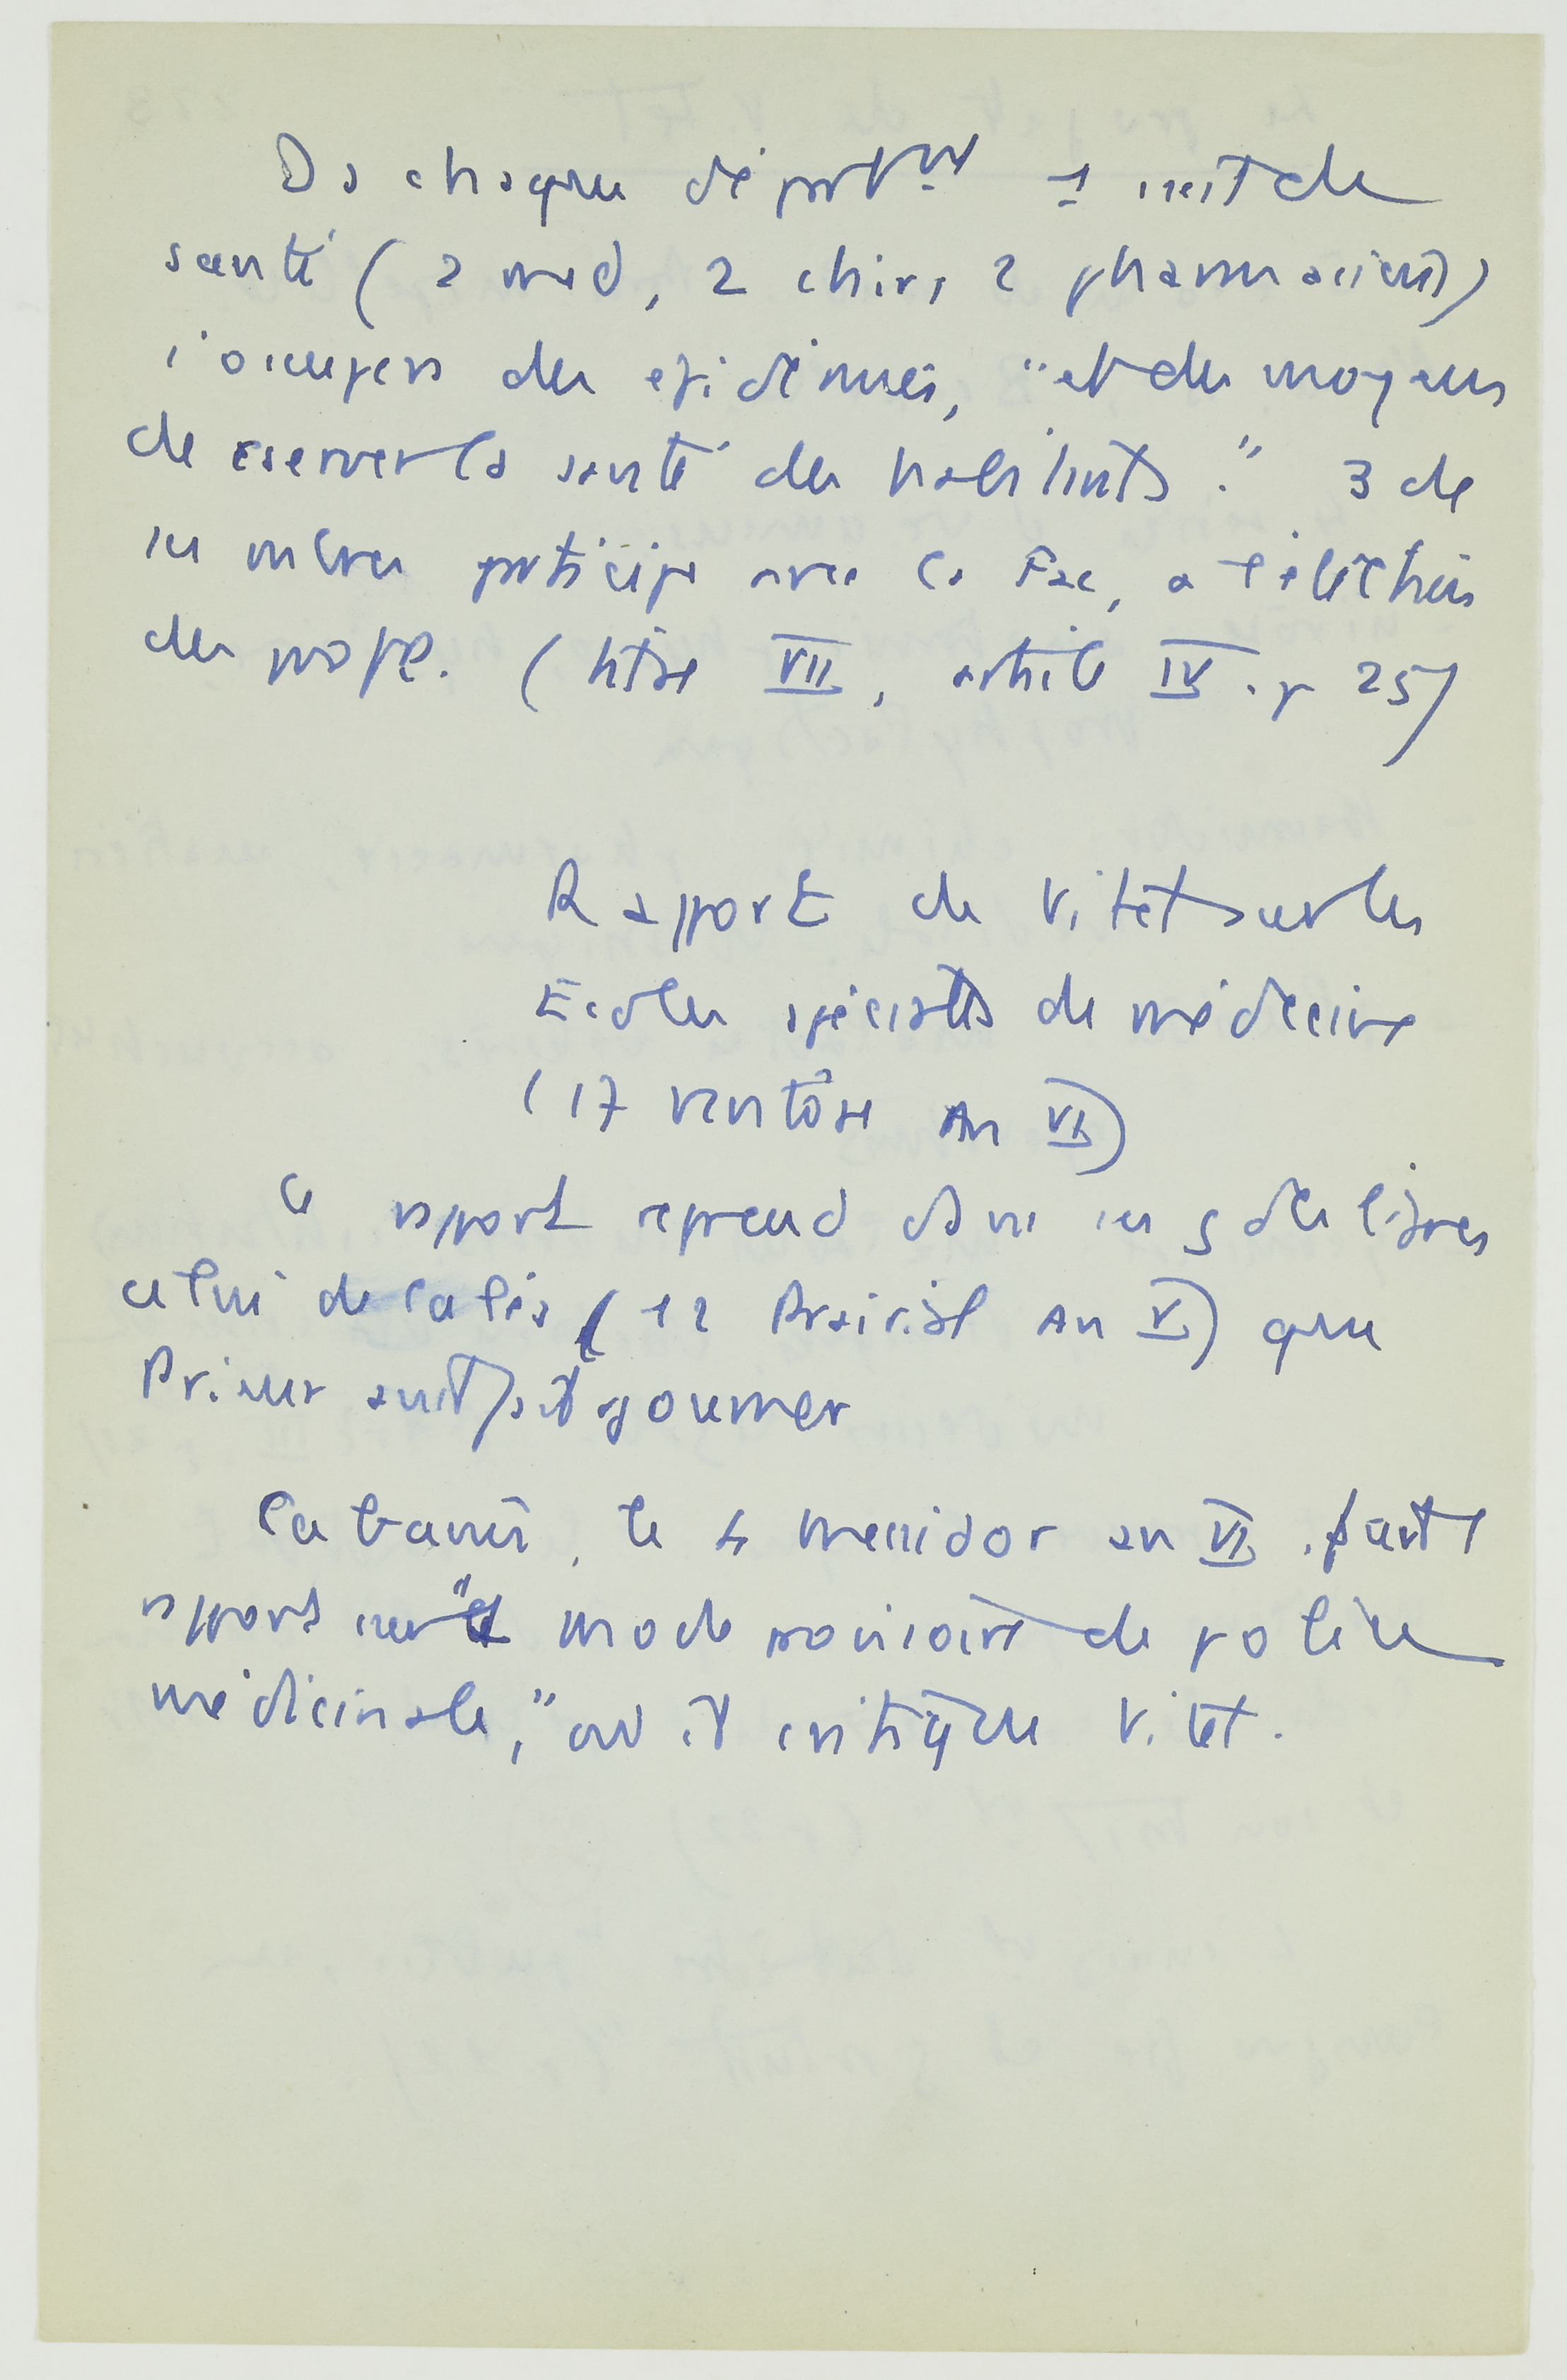 Ds chaque départmt 1 inst de
santé (2 med, 2 chir, 2 pharmaciens)
s'occupera des epidémies, "et des moyens
de cserver la santé des habitants." 3 de
ses mbres participe avec la Fac, a l'élection
des profs. (titre VII, article IV. p 25)
Rapport de Vitet sur les
Ecoles spéciales de médecine
(17 ventôse An VI)
Ce rapport reprend ds ses
celui de Calès (12 Prairial An V) que
Prieur avait fait ajourner
Cabanis, le 4 messidor an VI, fait 1
rapport sur "le mode provisoire de police
médicinale," où il critique Vitet.